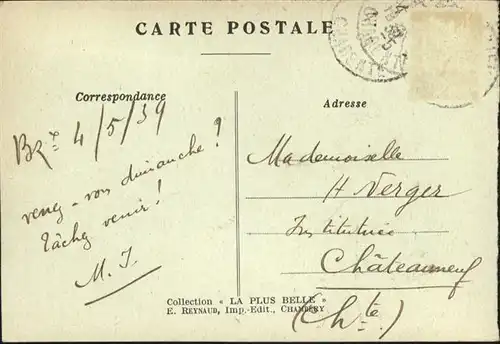 CARTE POSTALE
Correspondance
Adresse
4/5/39
venez-vous dimanche?
Tâchez venir!
M. J.
Mademoiselle
H Verger
Institutrice
Châteauneuf
(Chte.)
Collection « LA PLUS BELLE »
E. REYNAUD, Imp.-Edit., CHAMBÉRY